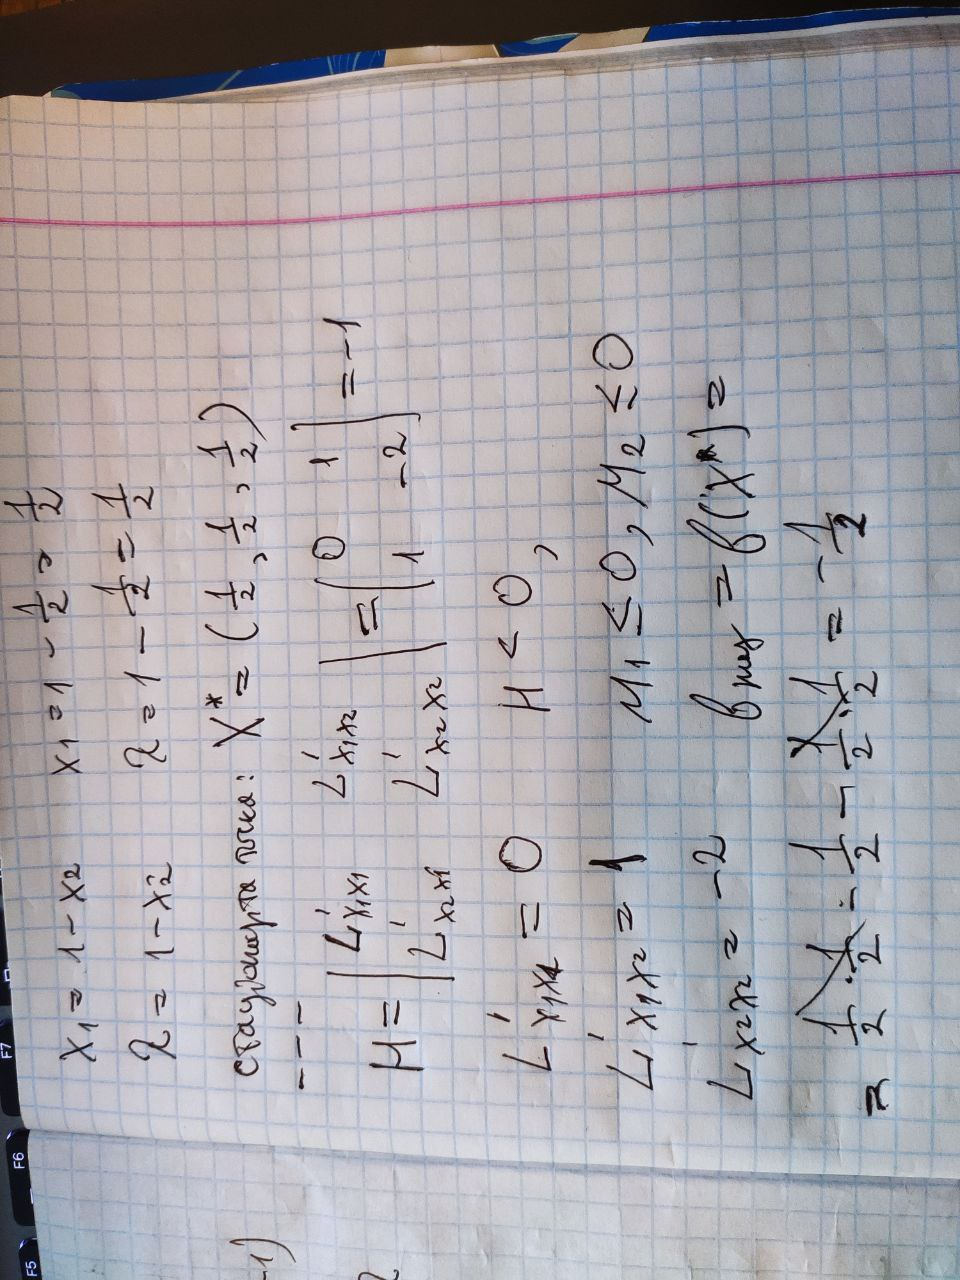 x₁ = 1 - x₂ x₁ = 1 - 1/2 = 1/2
λ = 1 - x₂ λ = 1 - 1/2 = 1/2
стаціонарта точка: X* = (1/2, 1/2, 1/2)
---
H = | L'x₁x₁ L'x₁x₂ | = | 0 1 | = -1
| L'x₂x₁ L'x₂x₂ | | 1 -2 |
L'x₁x₁ = 0 H < 0,
L'x₁x₂ = 1 M₁ ≤ 0, M₂ ≤ 0
L'x₂x₂ = -2 b max = b(X*) =
= 1/2 · 1/2 - 1/2 - 1/2 · 1/2 = -1/2
-1)
F5
F6
F7